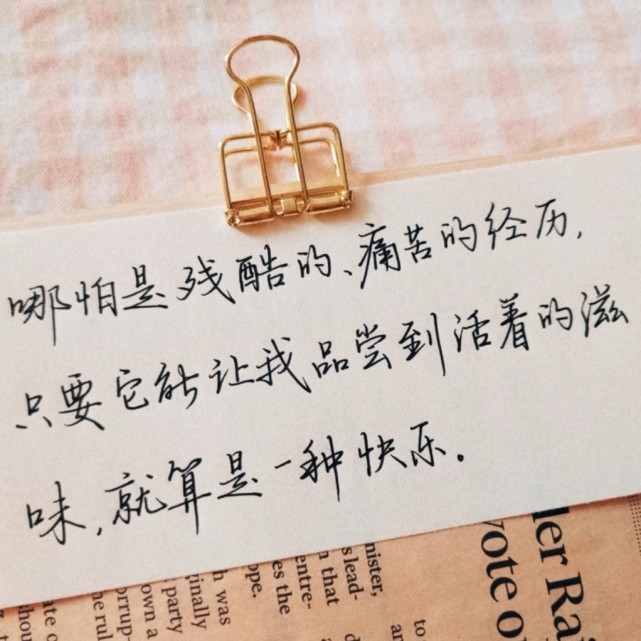 哪怕是残酷的、痛苦的经历,
只要它能让我品尝到活着的滋
味,就算是一种快乐.
ler Ra
vote o
nister,
s lead-
n that
entre-
es the
h was
ope.
ginally
party
own a
orrup-
he rul
ate o
shou
to